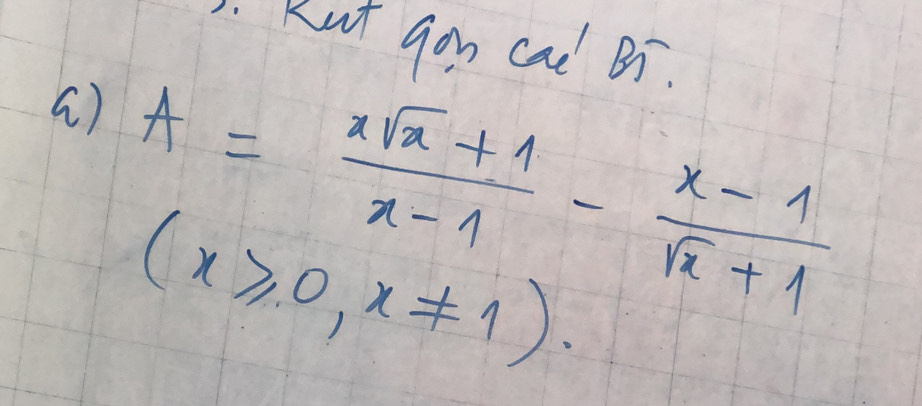 Rút gọn các BT.
a) A = \frac{x\sqrt{x} + 1}{x - 1} - \frac{x - 1}{\sqrt{x} + 1}
(x ⩾ 0, x ≠ 1).